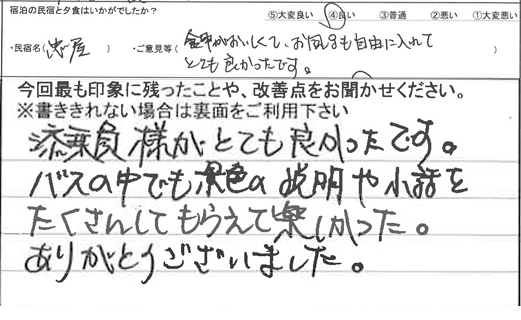 宿泊の民宿と夕食はいかがでしたか?
⑤大変良い ④良い ③普通 ②悪い ①大変悪い
・民宿名( 忠屋 ) ・ご意見等( 食事がおいしくて、お風呂も自由に入れて
とても良かったです。 )
今回最も印象に残ったことや、改善点をお聞かせください。
※書ききれない場合は裏面をご利用下さい
添乗員様がとても良かったです。
バスの中でも景色の説明や小話を
たくさんしてもらえて楽しかった。
ありがとうございました。